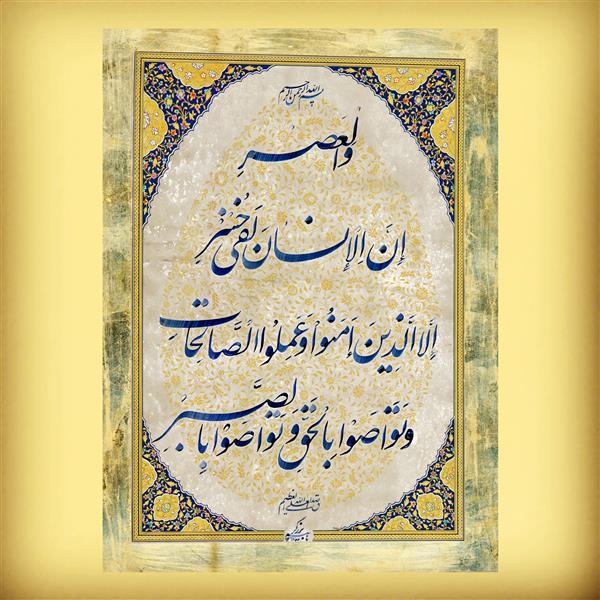 بسم الله الرحمن الرحیم
والعصرِ
إِنَّ الإِنسانَ لَفی خُسْرٍ
إِلا الَّذینَ اٰمَنُوا وَ عَمِلُوا الصَّالِحاتِ
وَتَوَاصَوْا بِالْحَقِّ وَ تَوَاصَوْا بِالصَّبرِ
صدق الله العلی العظیم